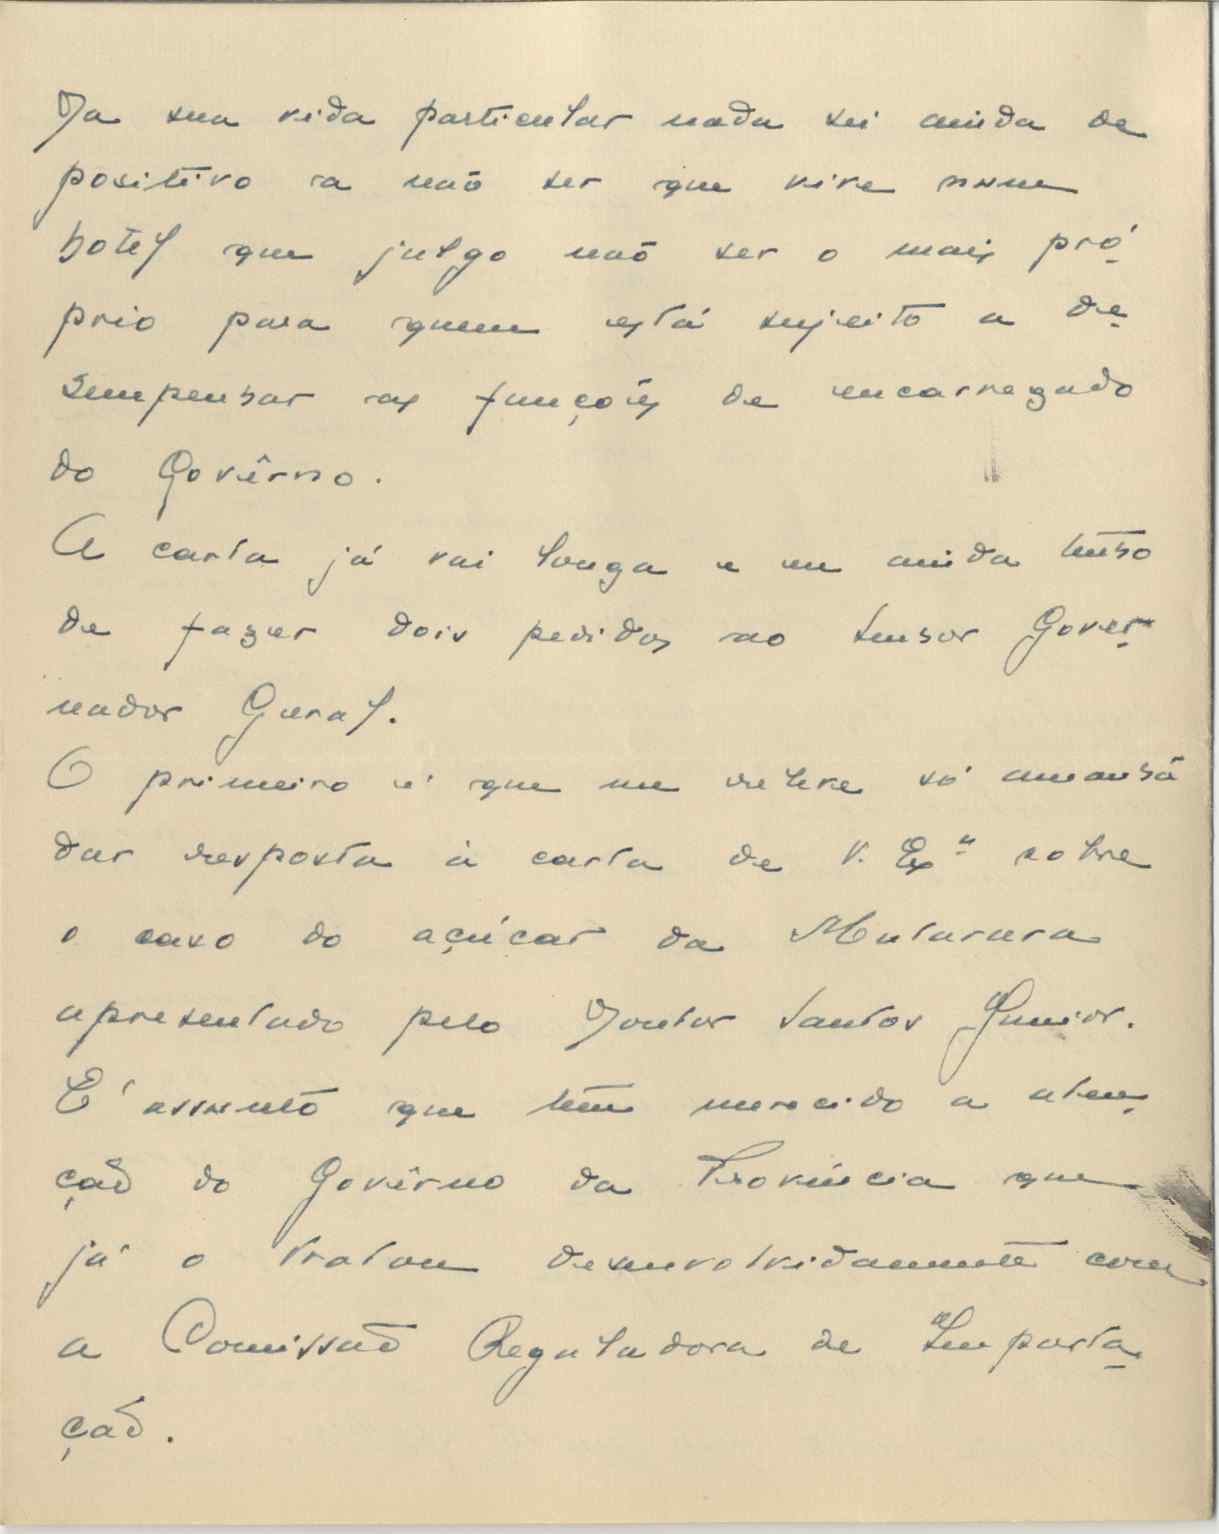 Da sua vida particular nada sei ainda de
positivo a não ser que vive num
hotel que julgo não ser o mais pró-
prio para quem está sujeito a de-
sempenhar as funções de encarregado
do Govêrno.
A carta já vai longa e eu ainda tenho
de fazer dois pedidos ao Senhor Gover-
nador Geral.
O primeiro é que me releve só amanhã
dar resposta à carta de V. Exª sobre
o caso do açúcar da Mutarara
apresentado pelo Doutor Santos Junior.
É assunto que tem merecido a aten-
ção do Govêrno da Província que
já o tratou desenvolvidamente com
a Comissão Reguladora de Importa-
ção.